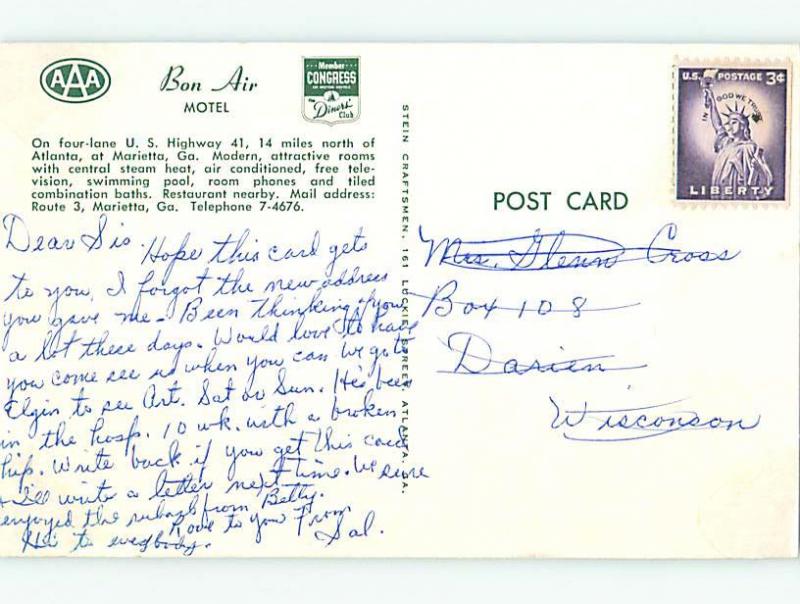 AAA
Bon Air
MOTEL
Member
CONGRESS
OF MOTOR HOTELS
The Diners' Club
On four-lane U. S. Highway 41, 14 miles north of
Atlanta, at Marietta, Ga. Modern, attractive rooms
with central steam heat, air conditioned, free tele-
vision, swimming pool, room phones and tiled
combination baths. Restaurant nearby. Mail address:
Route 3, Marietta, Ga. Telephone 7-4676.
Dear Sis Hope this card gets
to you, I forgot the new address
you gave me - Been thinking of you
a lot these days. Would love to have
you come see us when you can we go to
Elgin to see Art. Sat or Sun. He's been
in the hosp. 10 wk. with a broken
hip. Write back if you get this card
I'll write a letter next time. We sure
enjoyed the from Betty.
Love to you From
Hi to everybody. Sal.
STEIN CRAFTSMEN, 161 LUCKIE STREET ATLANTA, GA.
POST CARD
U.S. POSTAGE 3¢
IN GOD WE TRUST
LIBERTY
Mrs. Glenn Cross
Box 108
Darien
Wisconson